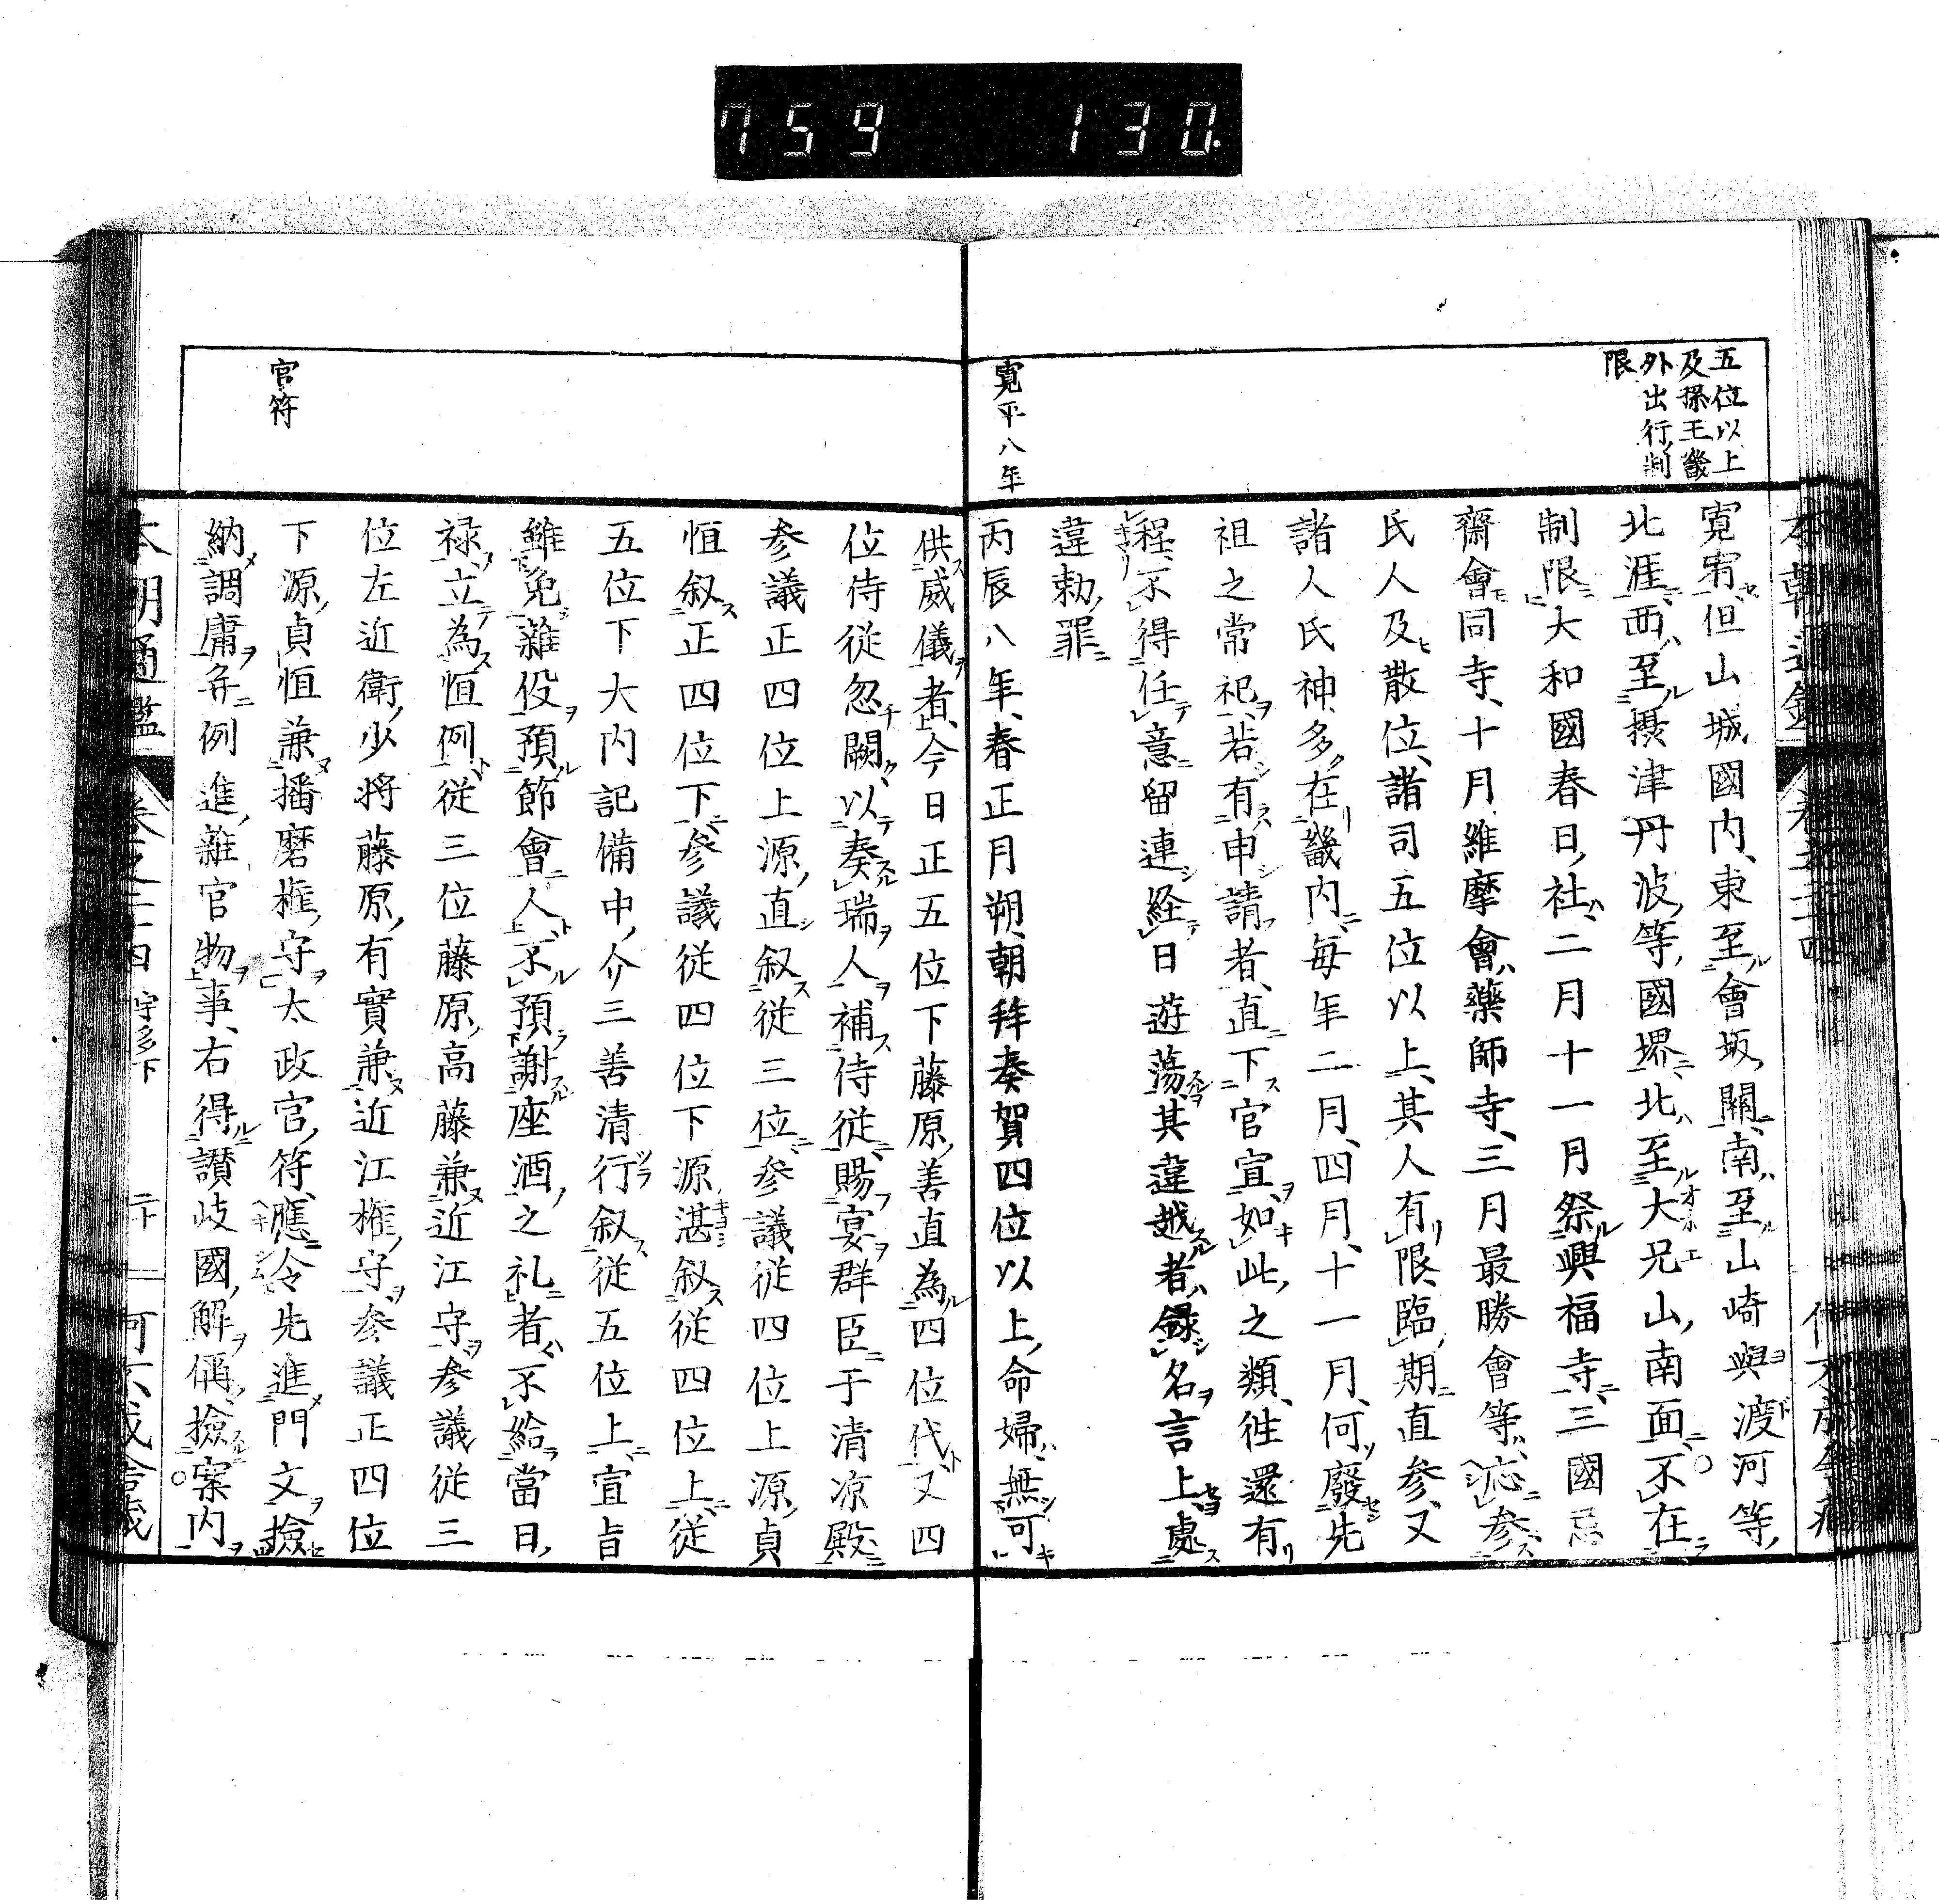 759 130.
五位以上
及孫王畿
外出行制
限
寛宥但山城國内東至會坂關南至山崎與渡河等
北涯西至摂津丹波等國堺北至大兄山南面不在
制限大和國春日社二月十一月祭興福寺三國忌
齋會同寺十月維摩會藥師寺三月最勝會等応参
氏人及散位諸司五位以上其人有限臨期直参又
諸人氏神多在畿内毎年二月四月十一月何廢先
祖之常祀若有申請者直下官宣如此之類徃還有
程不得任意留連経日遊蕩其違越者録名言上處
違勅罪
寛平八年
丙辰八年春正月朔朝拜奏賀四位以上命婦無可
供威儀者今日正五位下藤原善直為四位代又四
位侍從忽闕以奏瑞人補侍從賜宴群臣于清凉殿
参議正四位上源直叙従三位参議従四位上源貞
恒叙正四位下参議従四位下源湛叙従四位上従
五位下大内記備中介三善清行叙従五位上宣旨
雖免雜役預節會人不預謝座酒之礼者不給當日
禄立為恒例従三位藤原高藤兼近江守参議従三
位左近衛少将藤原有實兼近江権守参議正四位
下源貞恒兼播磨権守太政官符應令先進門文撿
官符
納調庸并例進雜官物事右得讃岐國解偁撿案内
本朝通鑑 卷之二十四 宇多下 二十